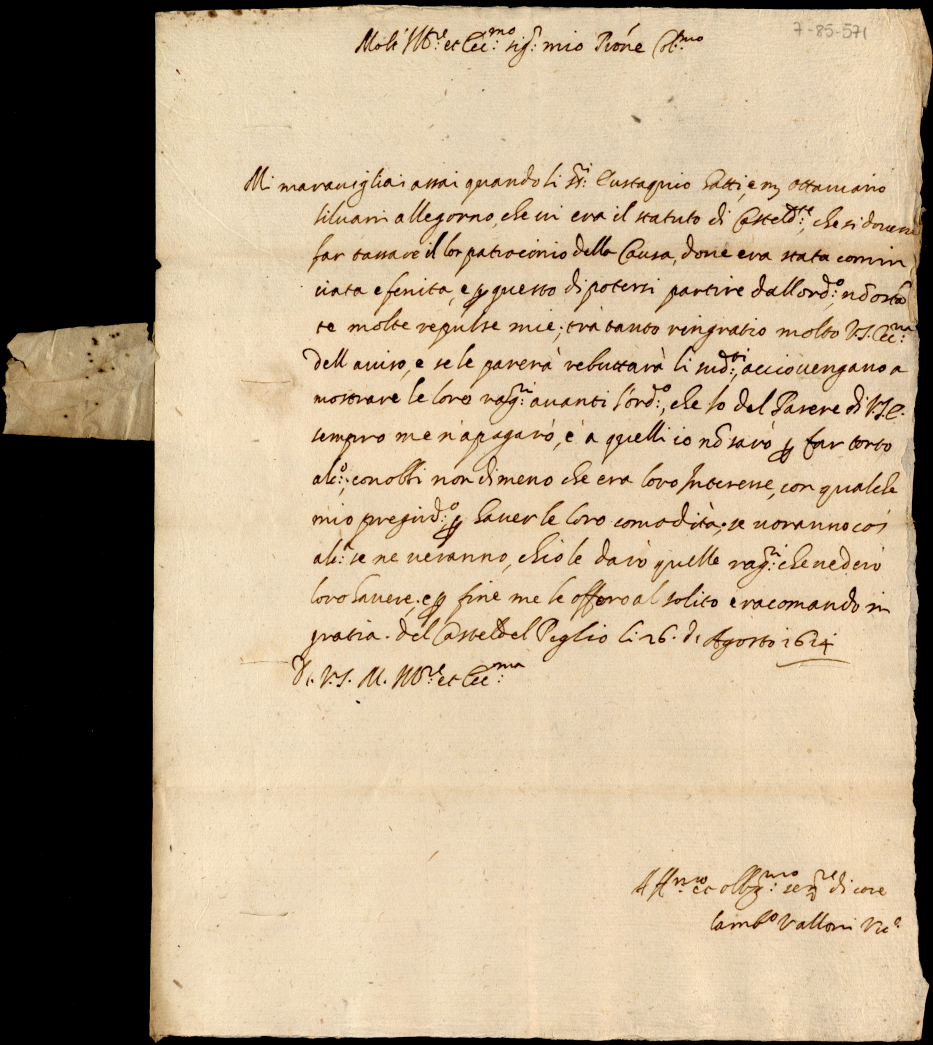 7-85-571
Molt' Ill.re et Ecc.mo sig.r mio P̃rone Col.mo
Mi maravigliai assai quando li ss.ri Eustaquio Gatti, e m Ottaviano
silvani allegorno, che vi era il statuto di Casteld.te, che si dovesse
far tassare il lor patrocinio della Causa, dove era stata comin
ciata e fenita, e p questo di potersi partire dall ord.o, nõ osta
te molte repulse mie; trà tanto ringratio molto V.S. Ecc.ma
dell aviso, e se le parerà rebuttarà li sud.ti, acciò vengano a
mostrare le loro rag.ni avanti l'ord.o, che io del Parere di V.S.E.
sempro me n'apagarò, e a quelli io nõ sarò p far torto
alc.o, conobbi non dimeno che era loro Interesse, con qualche
mio pregiud.o p haver le loro comodità; se voranno così
alc.i se ne veranno, ch'io le darò quelle rag.ni che vederò
loro havere, e p fine me le offero al solito e racomando in
gratia. del Castel del Peglio li 26. di Agosto 1624
Di V.S. M. Ill.re et Ecc.ma
Aff.mo et obblig.mo ser.re di core
Vallorii Vic.o